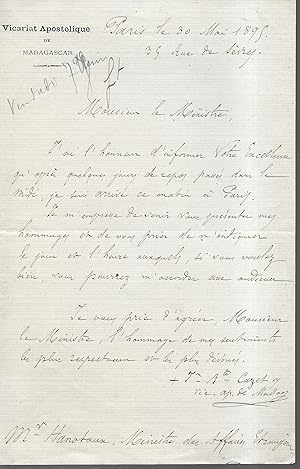 Vicariat Apostolique
DE
MADAGASCAR
Paris le 30 Mai 1895
35 Rue de Sèvres
Vendredi 7
Monsieur le Ministre,
J'ai l'honneur d'informer Votre Excellence
qu'après quelques jours de repos passés dans le
Midi, je suis arrivé ce matin à Paris.
Je m'empresse de venir vous présenter mes
hommages et de vous prier de m'indiquer
le jour et l'heure auxquels, si vous voulez
bien, vous pourrez m'accorder une audience
Je vous prie d'agréer, Monsieur
le Ministre, l'hommage de mes sentiments
le plus respectueux et le plus dévoué.
+ J. Bte Cazet
Vic. ap. de Madag.
Mr Hanotaux, Ministre des Affaires Etrangères